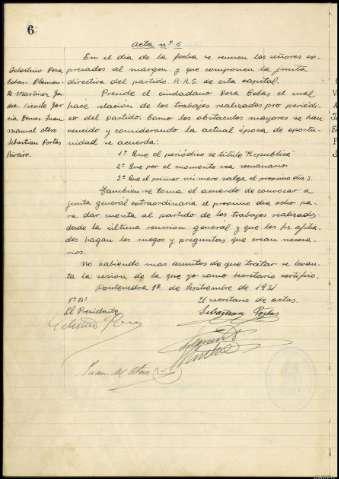 6
Acta nº 6
En el dia de la fecha se reunen los señores ex-
presados al margen y que componen la junta
directiva del partido R.R.S. de esta capital.
Preside el ciudadano Poza Cobas el cual
hace relacion de los trabajos realizados pro periódi-
co del partido. Como los obstáculos mayores se han
vencido y considerando la actual época de oportu-
nidad se acuerda:
1º Que el periódico se titule Republica
2º Que por el momento sea semanario
3º Que el primer número salga el proximo dia
Tambien se toma el acuerdo de convocar a
junta general extraordinaria el proximo dia ocho pa-
ra dar cuenta al partido de los trabajos realizados
desde la última reunion general y que los Srs afilia-
dos hagan los ruegos y preguntas que crean necesa-
rios.
No habiendo mas asuntos de que tratar se levan-
ta la sesion de la que yo como secretario certifico.
Pontevedra 1º de Septiembre de 1931
Vº Bº
El Presidente
El secretario de actas.
Celestino Poza
Sebastian Portas
Celestino Poza
Cobas
Martinez